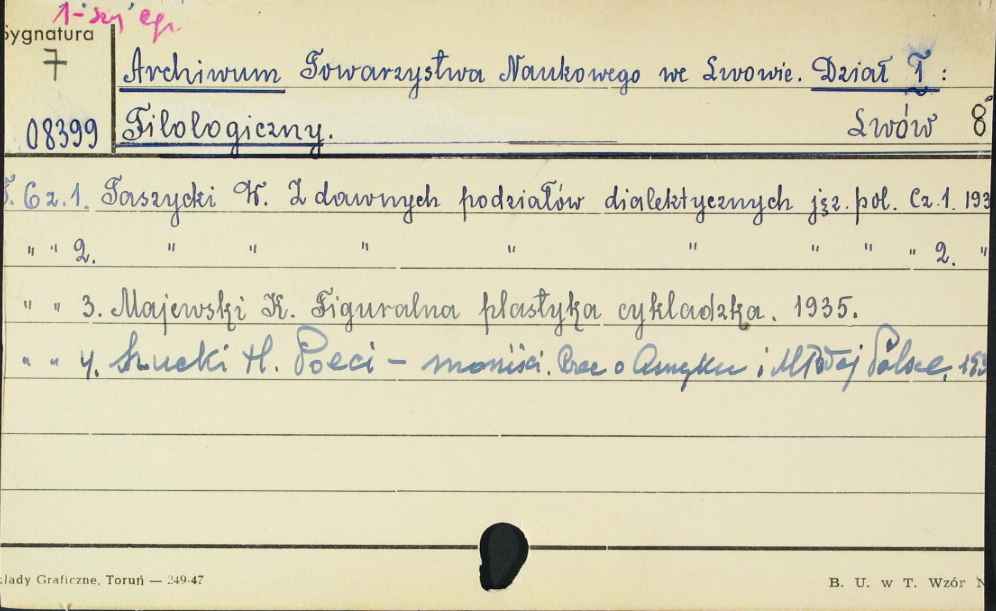 1-szy egz.
Sygnatura
7
Archiwum Towarzystwa Naukowego we Lwowie. Dział I :
08399 Filologiczny. Lwów 8°
T. 6 z. 1. Taszycki W. Z dawnych podziałów dialektycznych jęz. pol. Cz. 1. 193
" " 2. " " " " " " " " 2. "
" " 3. Majewski K. Figuralna plastyka cykladzka. 1935.
" " 4. Szucki H. Poeci - moniści. Rzec o Asnyku i Młodej Polsce. 193
łady Graficzne, Toruń — 249-47 B. U. w T. Wzór N